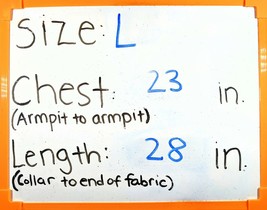 Size: L
Chest: 23 in.
(Armpit to armpit)
Length: 28 in.
(Collar to end of fabric)